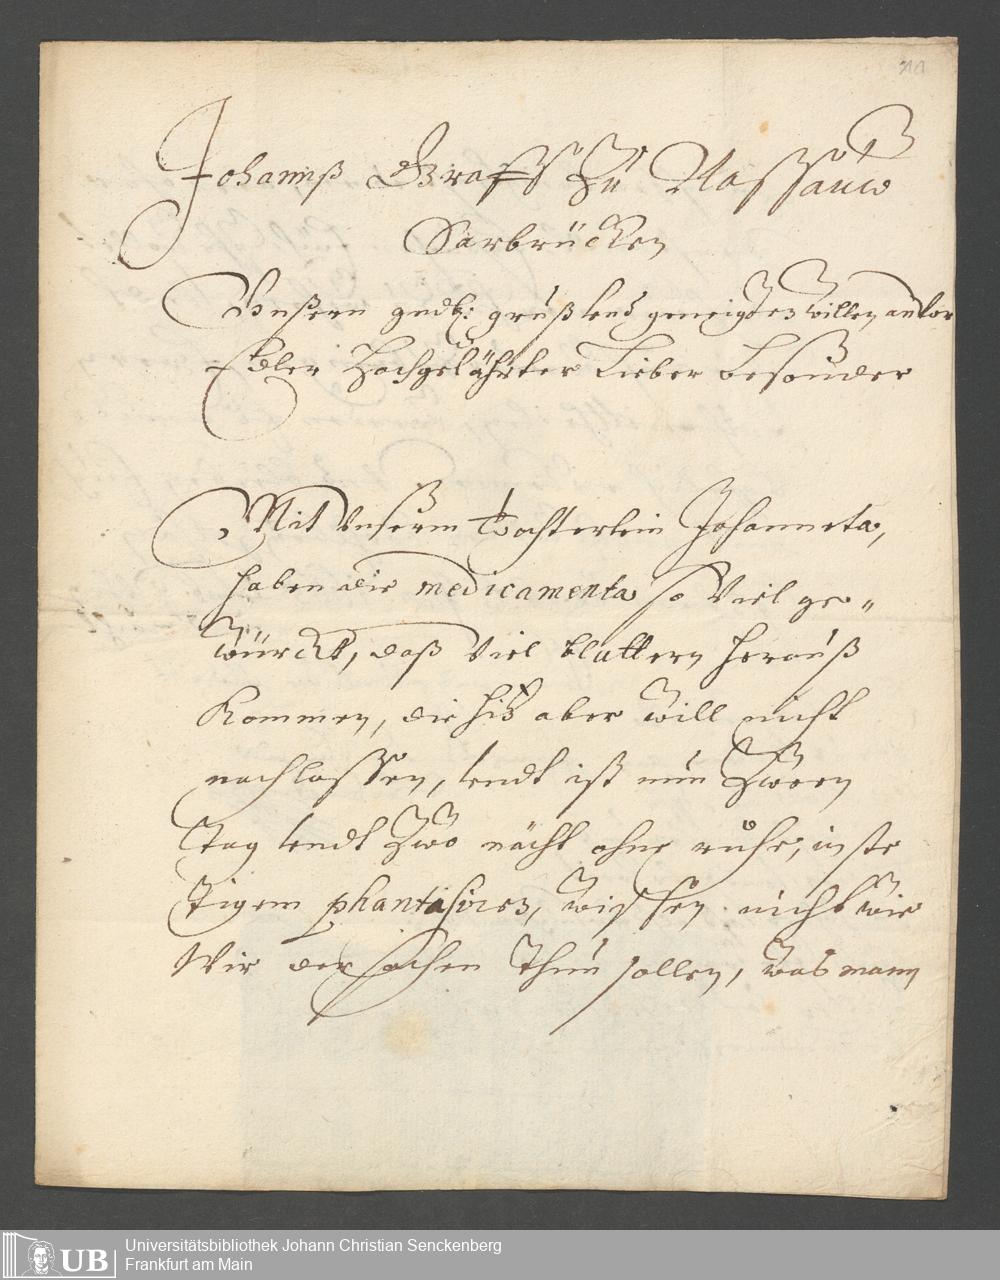 11
Johannß Graff Zu Naßsauw
Sarbrücken
Vnßern gndl: gruß vnd geneigten willen anvor
Edler Hochgelährter Lieber besonder
Mit vnserm töchterlein Johanneta,
haben die medicamenta so viel ge„
würckt, daß viel blattern herauß
kommen, die hitz aber will nicht
nachlassen, vndt ist nun Zween
Tag vndt Zwo nächt ohne ruhe, in ste
tigem phantisiren, wissen nicht wie
Wir der sachen thun sollen, was mann
UB
Universitätsbibliothek Johann Christian Senckenberg
Frankfurt am Main